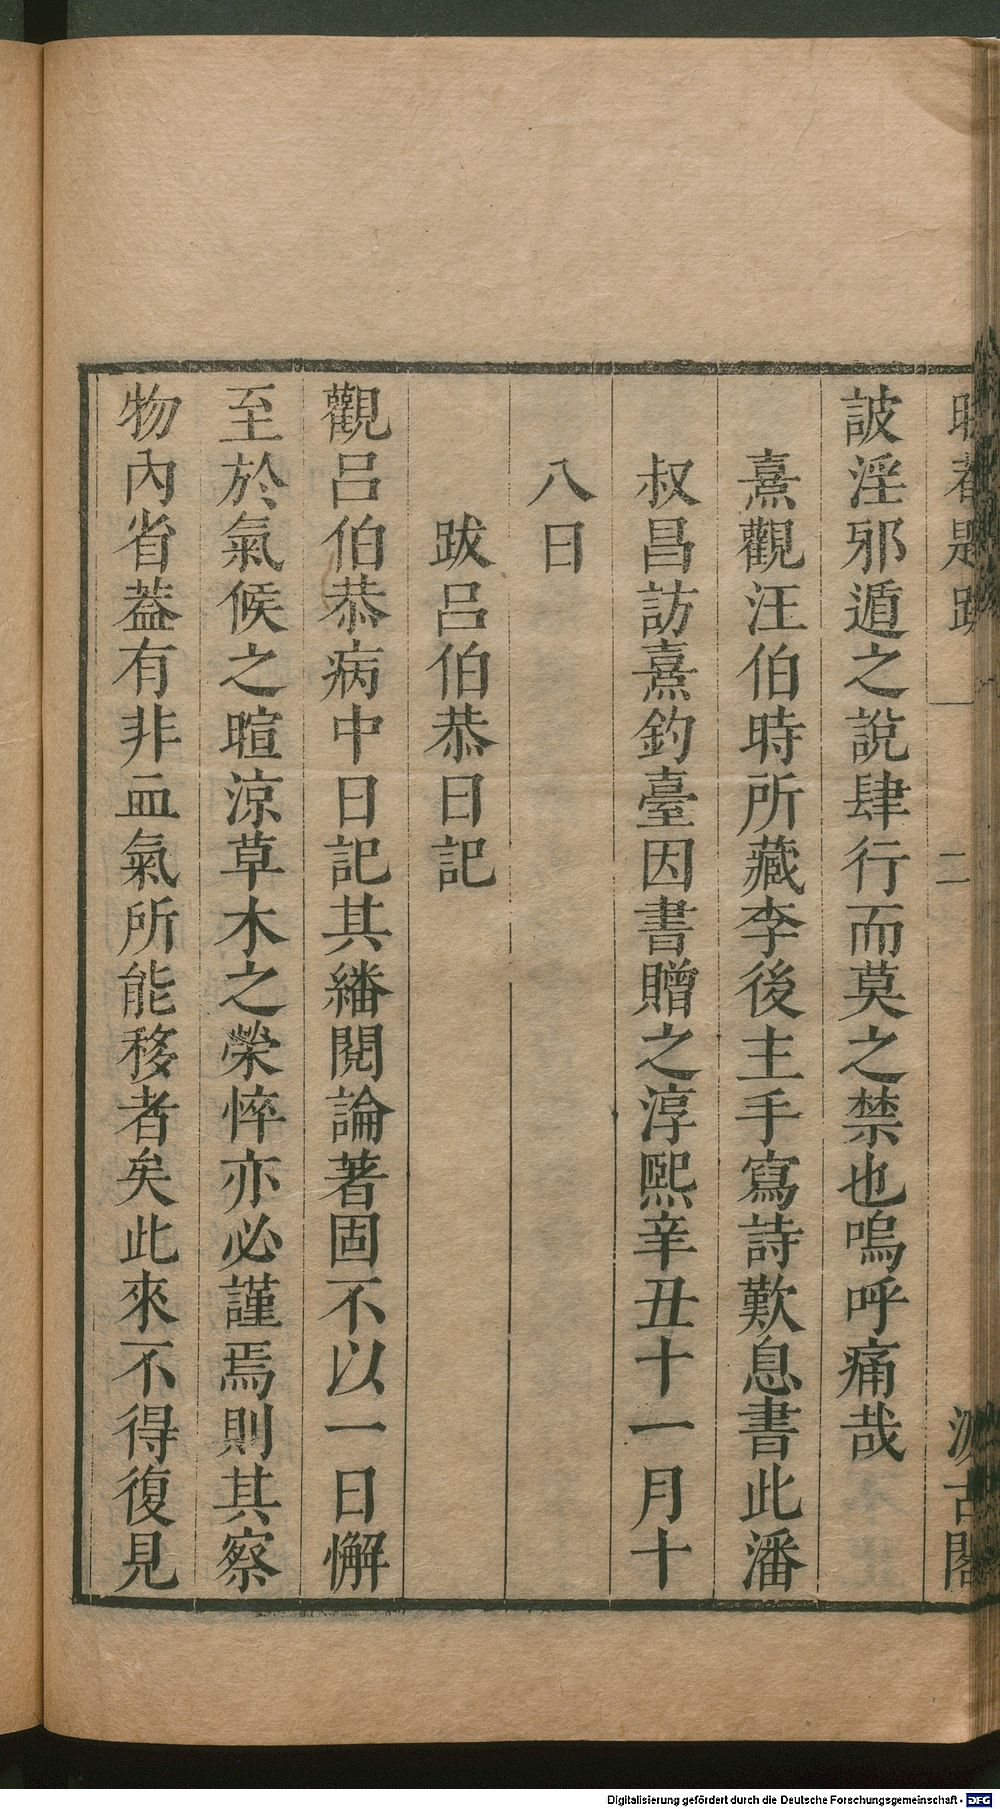 晦菴題跋 一 二 汲古閣
詖淫邪遁之說肆行而莫之禁也嗚呼痛哉
熹觀汪伯時所藏李後主手寫詩歎息書此潘
叔昌訪熹釣臺因書贈之淳熙辛丑十一月十
八日
跋呂伯恭日記
觀呂伯恭病中日記其繙閱論著固不以一日懈
至於氣候之暄涼草木之榮悴亦必謹焉則其察
物內省葢有非血氣所能移者矣此來不得復見
Digitalisierung gefördert durch die Deutsche Forschungsgemeinschaft - DFG